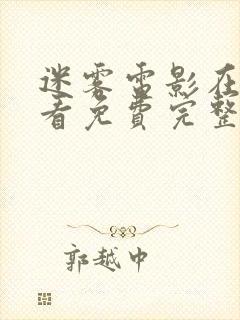 迷雾雷影在
看免费完整
郭越中